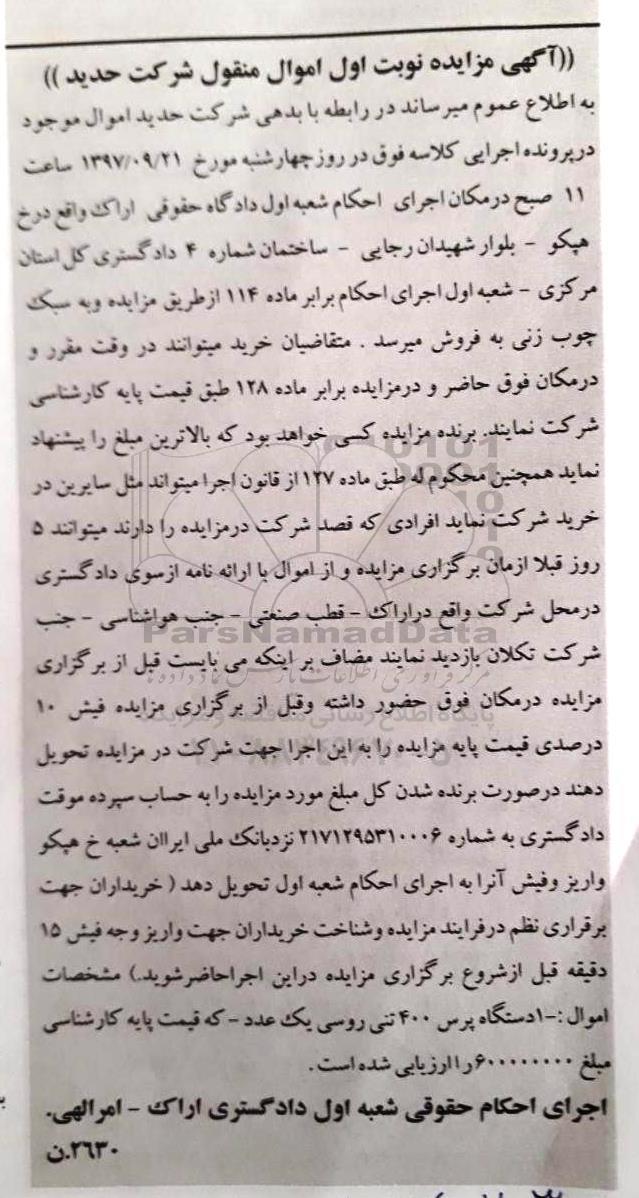 ((آگهی مزایده نوبت اول اموال منقول شرکت حدید ))
به اطلاع عموم میرساند در رابطه با بدهی شرکت حدید اموال موجود
درپرونده اجرایی کلاسه فوق در روز چهارشنبه مورخ ۱۳۹۷/۰۹/۲۱ ساعت
۱۱ صبح درمکان اجرای احکام شعبه اول دادگاه حقوقی اراک واقع درخ
هپکو - بلوار شهیدان رجایی - ساختمان شماره ۴ دادگستری کل استان
مرکزی - شعبه اول اجرای احکام برابر ماده ۱۱۴ ازطریق مزایده وبه سبک
چوب زنی به فروش میرسد . متقاضیان خرید میتوانند در وقت مقرر و
درمکان فوق حاضر و درمزایده برابر ماده ۱۲۸ طبق قیمت پایه کارشناسی
شرکت نمایند. برنده مزایده کسی خواهد بود که بالاترین مبلغ را پیشنهاد
نماید همچنین محکوم له طبق ماده ۱۲۷ از قانون اجرا میتواند مثل سایرین در
خرید شرکت نماید افرادی که قصد شرکت درمزایده را دارند میتوانند ۵
روز قبلا ازمان برگزاری مزایده و از اموال با ارائه نامه ازسوی دادگستری
درمحل شرکت واقع دراراک - قطب صنعتی - جنب هواشناسی - جنب
ParsNamadData
شرکت تکلان بازدید نمایند مضاف بر اینکه می بایست قبل از برگزاری
مزایده درمکان فوق حضور داشته وقبل از برگزاری مزایده فیش ۱۰
درصدی قیمت پایه مزایده را به این اجرا جهت شرکت در مزایده تحویل
دهند درصورت برنده شدن کل مبلغ مورد مزایده را به حساب سپرده موقت
دادگستری به شماره ۲۱۷۱۲۹۵۳۱۰۰۰۶ نزدبانک ملی ایراان شعبه خ هپکو
واریز وفیش آنرا به اجرای احکام شعبه اول تحویل دهد ( خریداران جهت
برقراری نظم درفرایند مزایده وشناخت خریداران جهت واریز وجه فیش ۱۵
دقیقه قبل ازشروع برگزاری مزایده دراین اجراحاضرشوید.) مشخصات
اموال :-۱دستگاه پرس ۴۰۰ تنی روسی یک عدد - که قیمت پایه کارشناسی
مبلغ ۶۰۰۰۰۰۰۰۰۰را ارزیابی شده است .
اجرای احکام حقوقی شعبه اول دادگستری اراک - امرالهی.
۲۶۳۰.ن